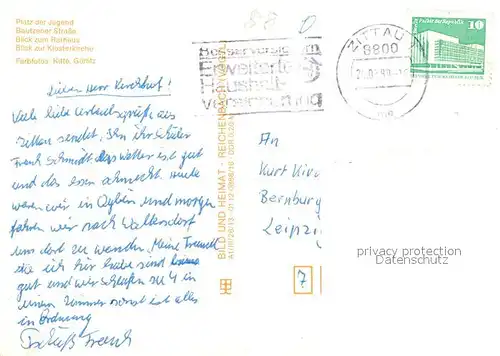 Platz der Jugend
Bautzener Straße
Blick zum Rathaus
Blick zur Klosterkirche
Farbfotos: Kutte, Görlitz
88 0
ZITTAU
8800
10
Palast der Republik
Lieber Herr
Viele liebe Urlaubsgrüße aus
Zittau sendet Ihn ihr Schüler
Frank Schmidt das Wetter ist gut
und das Essen schmeckt. Heute
waren wir in Oybin und morgen
fahren wir nach Waltersdorf
um dort zu wandern. Meine Freunde
die ich hir habe sind
gut und wir schlafen zu 4 in
einen Zimmer sonst ist alles
in Ordnung
Tschüß Frank
BILD UND HEIMAT · REICHENBACH (VOGTL)
An
Kurt
Bernburg
Leipzi
7
privacy protection
Datenschutz